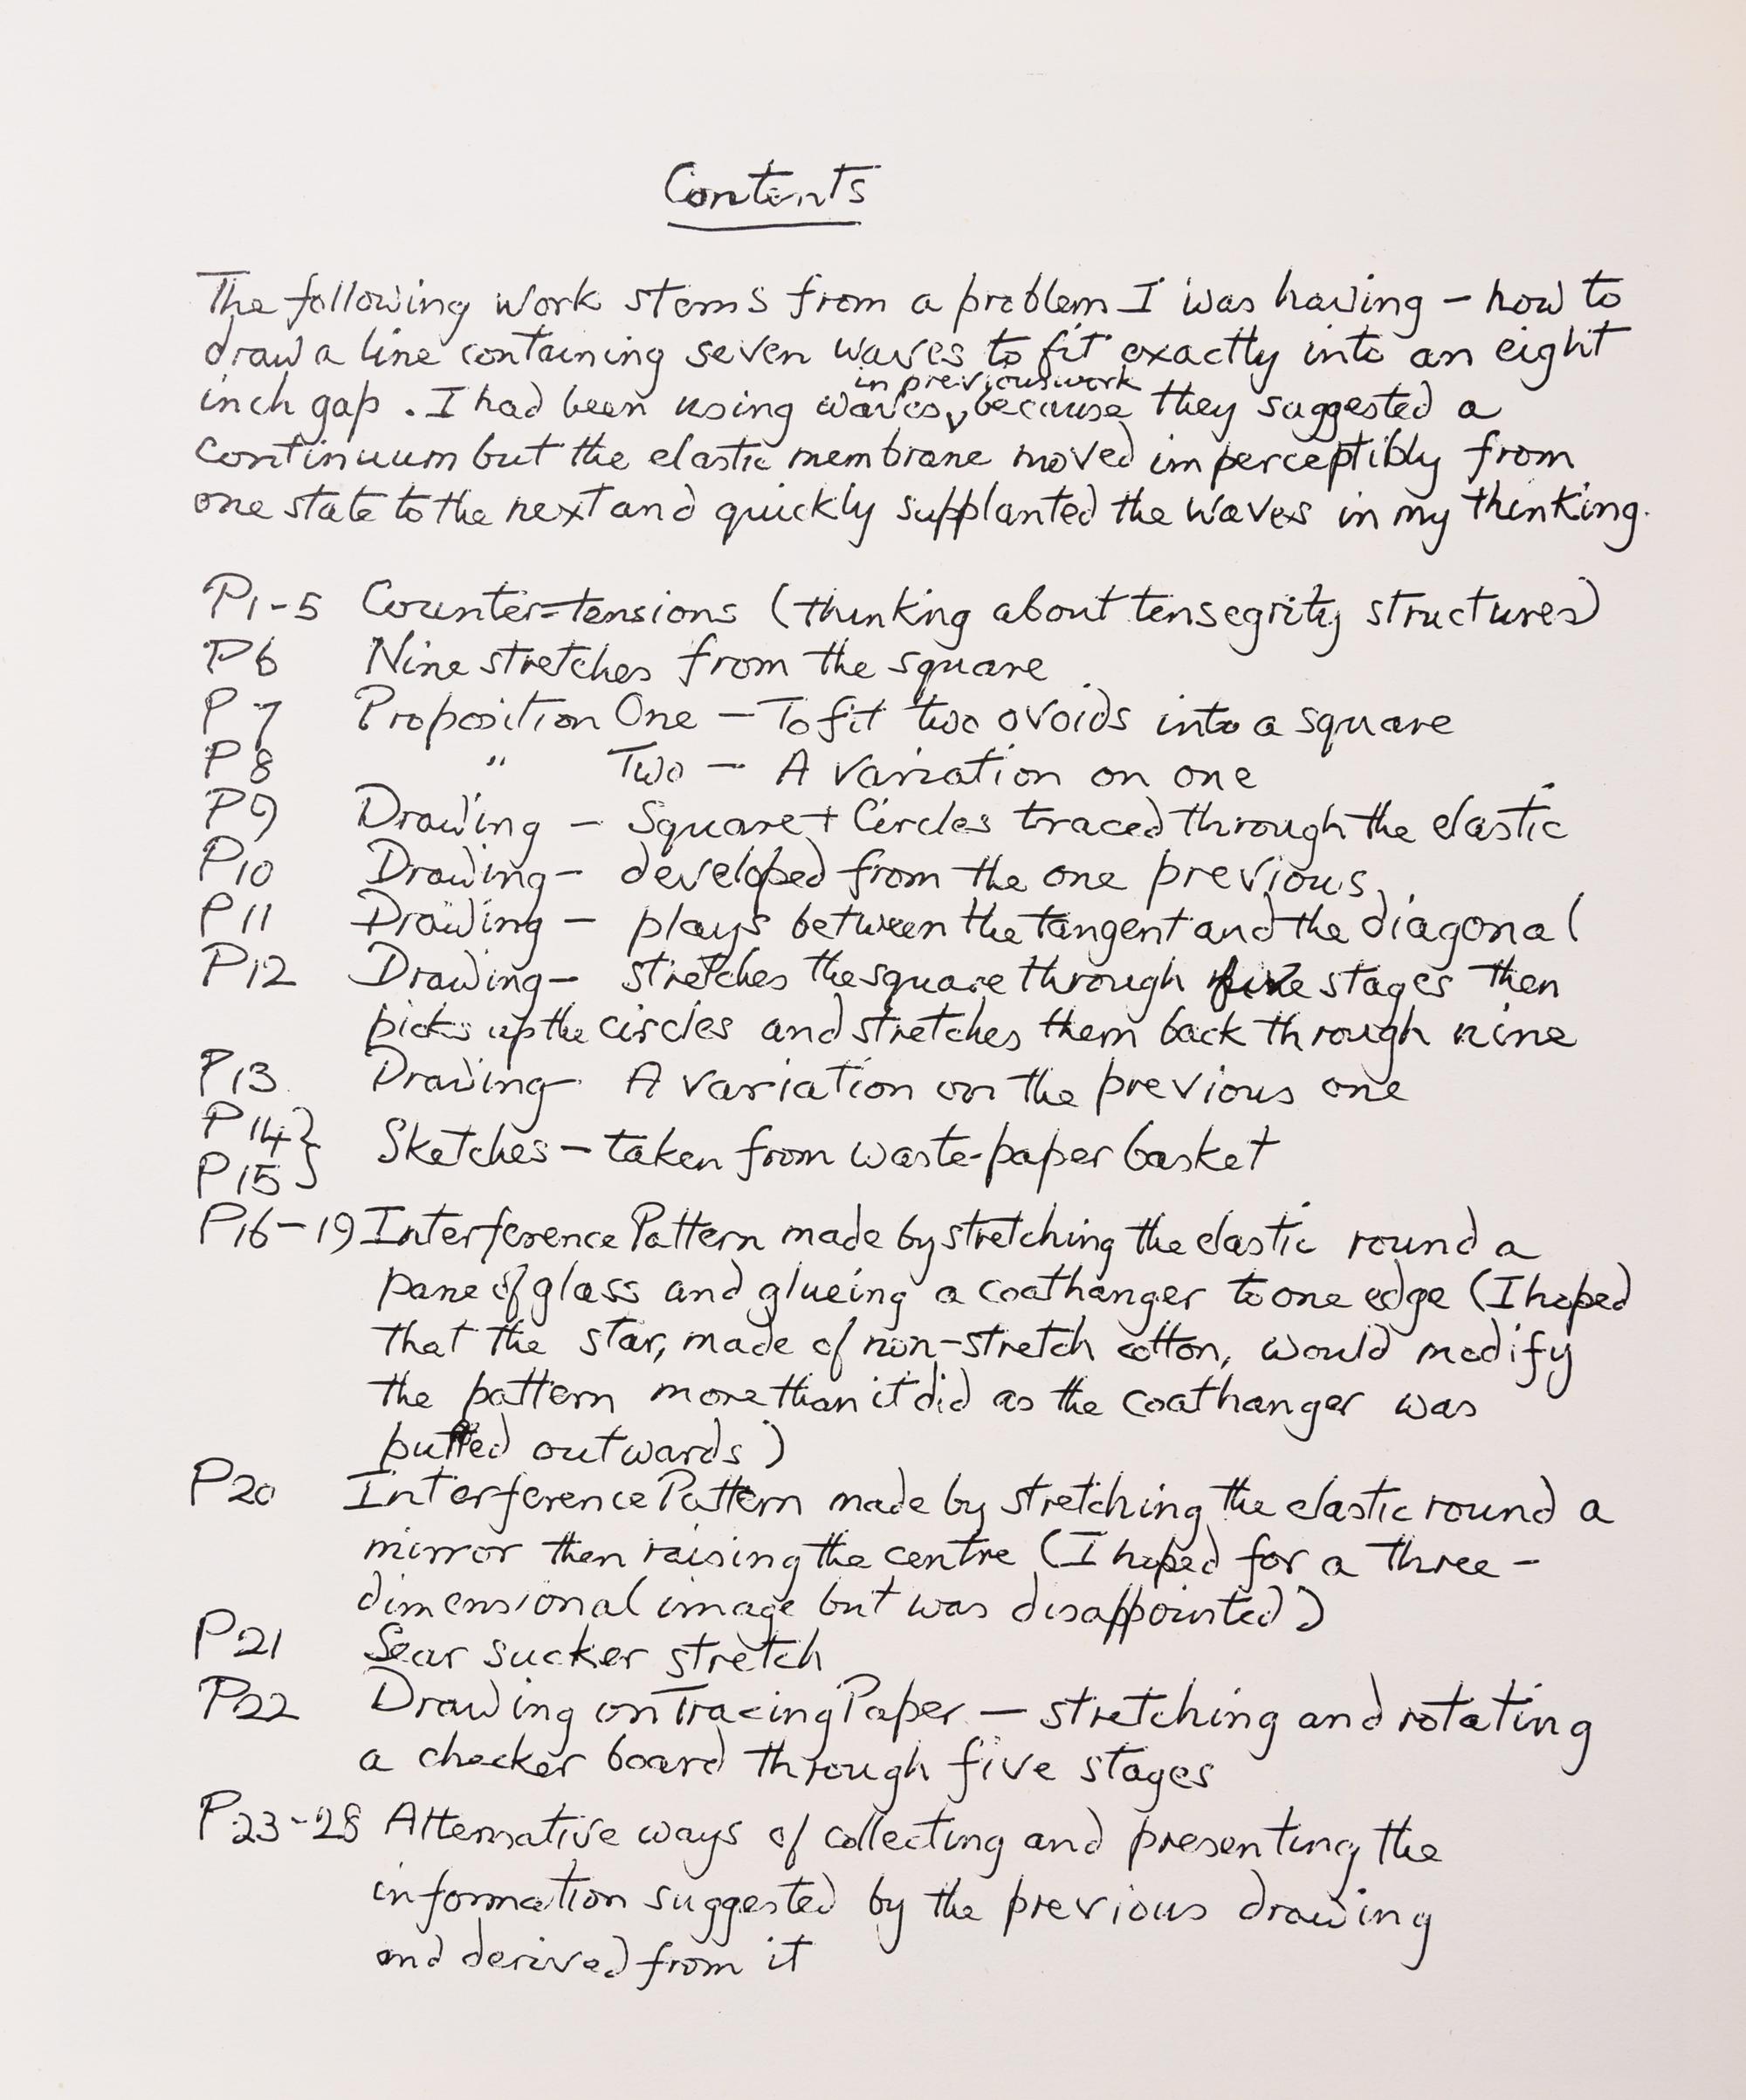 Contents
The following work stems from a problem I was having – how to
draw a line containing seven waves to fit exactly into an eight
in previous work
inch gap. I had been using waves, because they suggested a
continuum but the elastic membrane moved imperceptibly from
one state to the next and quickly supplanted the waves in my thinking.
P1-5 Counter-tensions (thinking about tensegrity structures)
P6 Nine stretches from the square
P7 Proposition One – To fit two ovoids into a square
P8 " Two – A variation on one
P9 Drawing – Square + Circles traced through the elastic
P10 Drawing – developed from the one previous
P11 Drawing – plays between the tangent and the diagonal
P12 Drawing – stretches the square through five stages then
picks up the circles and stretches them back through nine
P13 Drawing – A variation on the previous one
P14}
P15} Sketches – taken from waste-paper basket
P16-19 Interference Pattern made by stretching the elastic round a
pane of glass and glueing a coathanger to one edge (I hoped
that the star, made of non-stretch cotton, would modify
the pattern more than it did as the coathanger was
pulled outwards)
P20 Interference Pattern made by stretching the elastic round a
mirror then raising the centre (I hoped for a three-
dimensional image but was disappointed)
P21 Sear sucker stretch
P22 Drawing on Tracing Paper – stretching and rotating
a checker board through five stages
P23-28 Alternative ways of collecting and presenting the
information suggested by the previous drawing
and derived from it